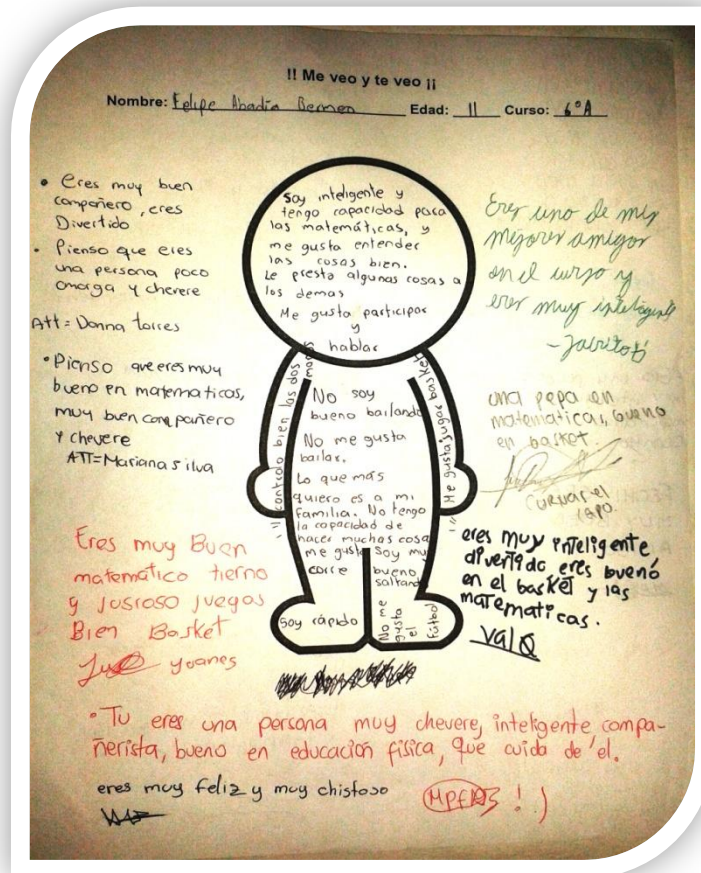 !! Me veo y te veo ¡¡
Nombre: Felipe Abadía Edad: 11 Curso: 6°A
• Eres muy buen
compañero, eres
Divertido
• Pienso que eres
una persona poco
amarga y chevere
Att = Danna torres
• Pienso que eres muy
bueno en matematicas,
muy buen compañero
y chevere
ATT = Mariana silva
Eres muy Buen
matemático tierno
y juegos
Bien Basket
yoanes
Soy inteligente y
tengo capacidad para
las matemáticas, y
me gusta entender
las cosas bien.
Le presto algunas cosas a
los demas
Me gusta participar
y
hablar
controlo bien las dos manos
No soy
bueno bailando
No me gusta
bailar.
Lo que más
quiero es a mi
familia. No tengo
la capacidad de
hacer muchas cosa
me gusta soy mu
corre bueno
saltand
Me gusta jugar basket
Soy rápido
No me
gusta
el
fútbol
Eres uno de mis
mejores amigos
en el curso y
eres muy inteligente
una pepa en
matematicas, bueno
en basket.
el
capo.
eres muy inteligente
divertido eres bueno
en el basket y las
matematicas.
Val Q
• Tu eres una persona muy chevere, inteligente compa-
ñerista, bueno en educación física, que cuida de él.
eres muy feliz y muy chistoso